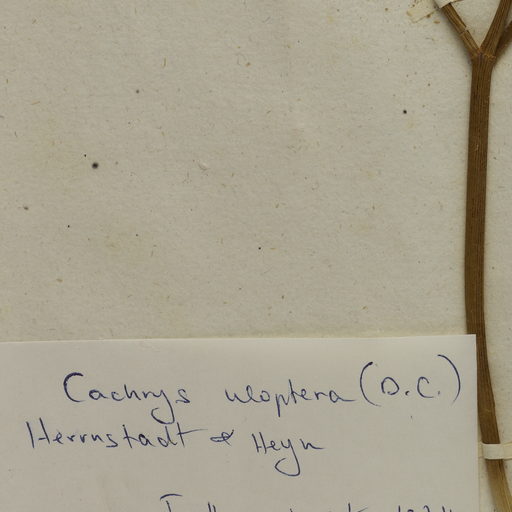 Cachrys uloptera (D.C.)
Herrnstadt & Heyn